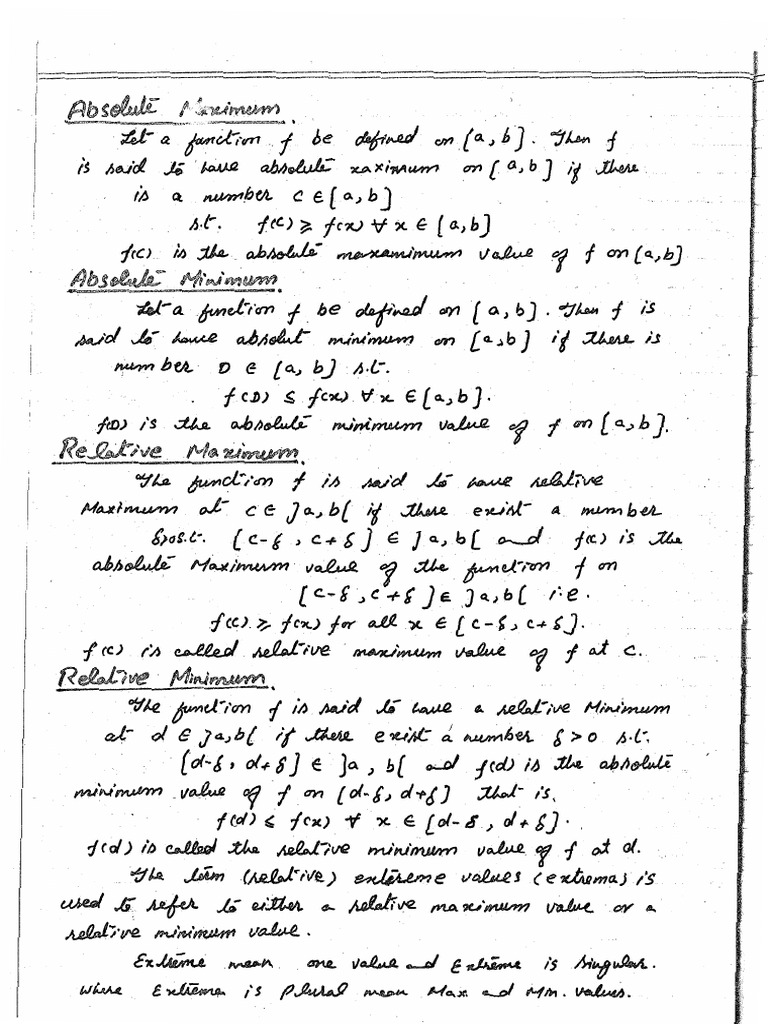 Absolute Maximum.
Let a function f be defined on [a, b]. Then f
is said to have absolute xaximum on [a, b] if there
is a number C ∈ [a, b]
s.t. f(C) ⩾ f(x) ∀ x ∈ [a, b]
f(C) is the absolute maxamimum value of f on [a, b]
Absolute Minimum.
Let a function f be defined on [a, b]. Then f is
said to have absolut minimum on [a, b] if there is
number D ∈ [a, b] s.t.
f(D) ≤ f(x) ∀ x ∈ [a, b].
f(D) is the absolute minimum value of f on [a, b].
Relative Maximum.
The function f is said to have relative
Maximum at c ∈ ]a, b[ if there exist a number
δ>0 s.t. [c-δ, c+δ] ∈ ]a, b[ and f(c) is the
absolute Maximum value of the function f on
[c-δ, c+δ] ∈ ]a, b[ i.e.
f(c) ⩾ f(x) for all x ∈ [c-δ, c+δ].
f(c) is called relative maximum value of f at c.
Relative Minimum.
The function f is said to have a relative Minimum
at d ∈ ]a, b[ if there exist a number δ>0 s.t.
[d-δ, d+δ] ∈ ]a, b[ and f(d) is the absolute
minimum value of f on [d-δ, d+δ] that is,
f(d) ≤ f(x) ∀ x ∈ [d-δ, d+δ].
f(d) is called the relative minimum value of f at d.
The term (relative) extereme values (extrema) is
used to refer to either a relative maximum value or a
relative minimum value.
Extreme mean one value and Extreme is singular.
where Extrema is Plural mean Max and Min. values.